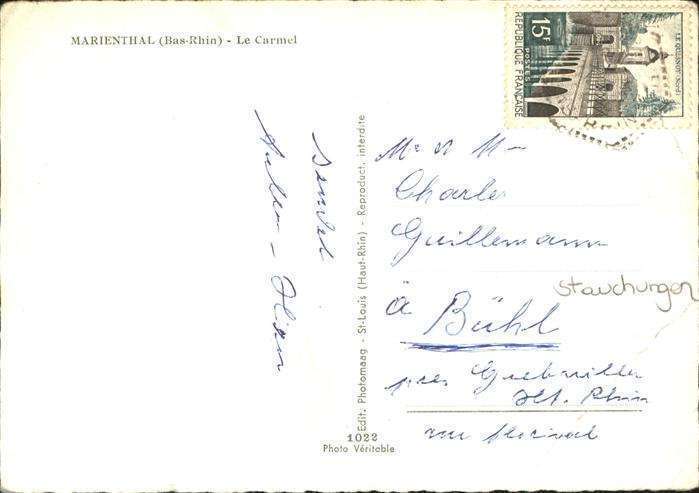 MARIENTHAL (Bas-Rhin) - Le Carmel
15F
POSTES
REPUBLIQUE FRANÇAISE
LE QUESNOY
Edit. Photomaag - St-Louis (Haut-Rhin) - Reproduct. interdite
1022
Photo Véritable
Mr et M
Charles
Guillemann
à Bühl
près Guebwiller
Ht. Rhin
rue
stauchungen